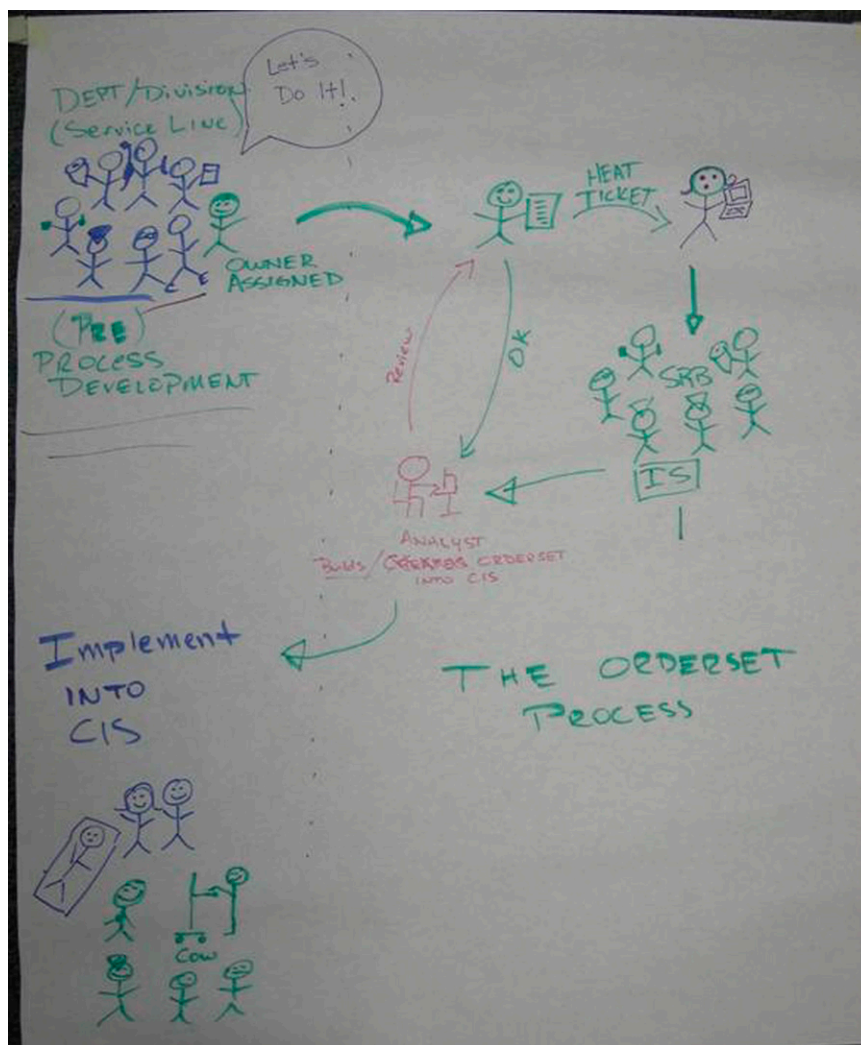 Let's
Do It!
DEPT/Division
(Service Line)
OWNER
ASSIGNED
(PRE)
PROCESS
DEVELOPMENT
HEAT
TICKET
Review
OK
SRB
IS
ANALYST
Builds/ ORDERSET
INTO CIS
Implement
INTO
CIS
THE ORDERSET
PROCESS
COW